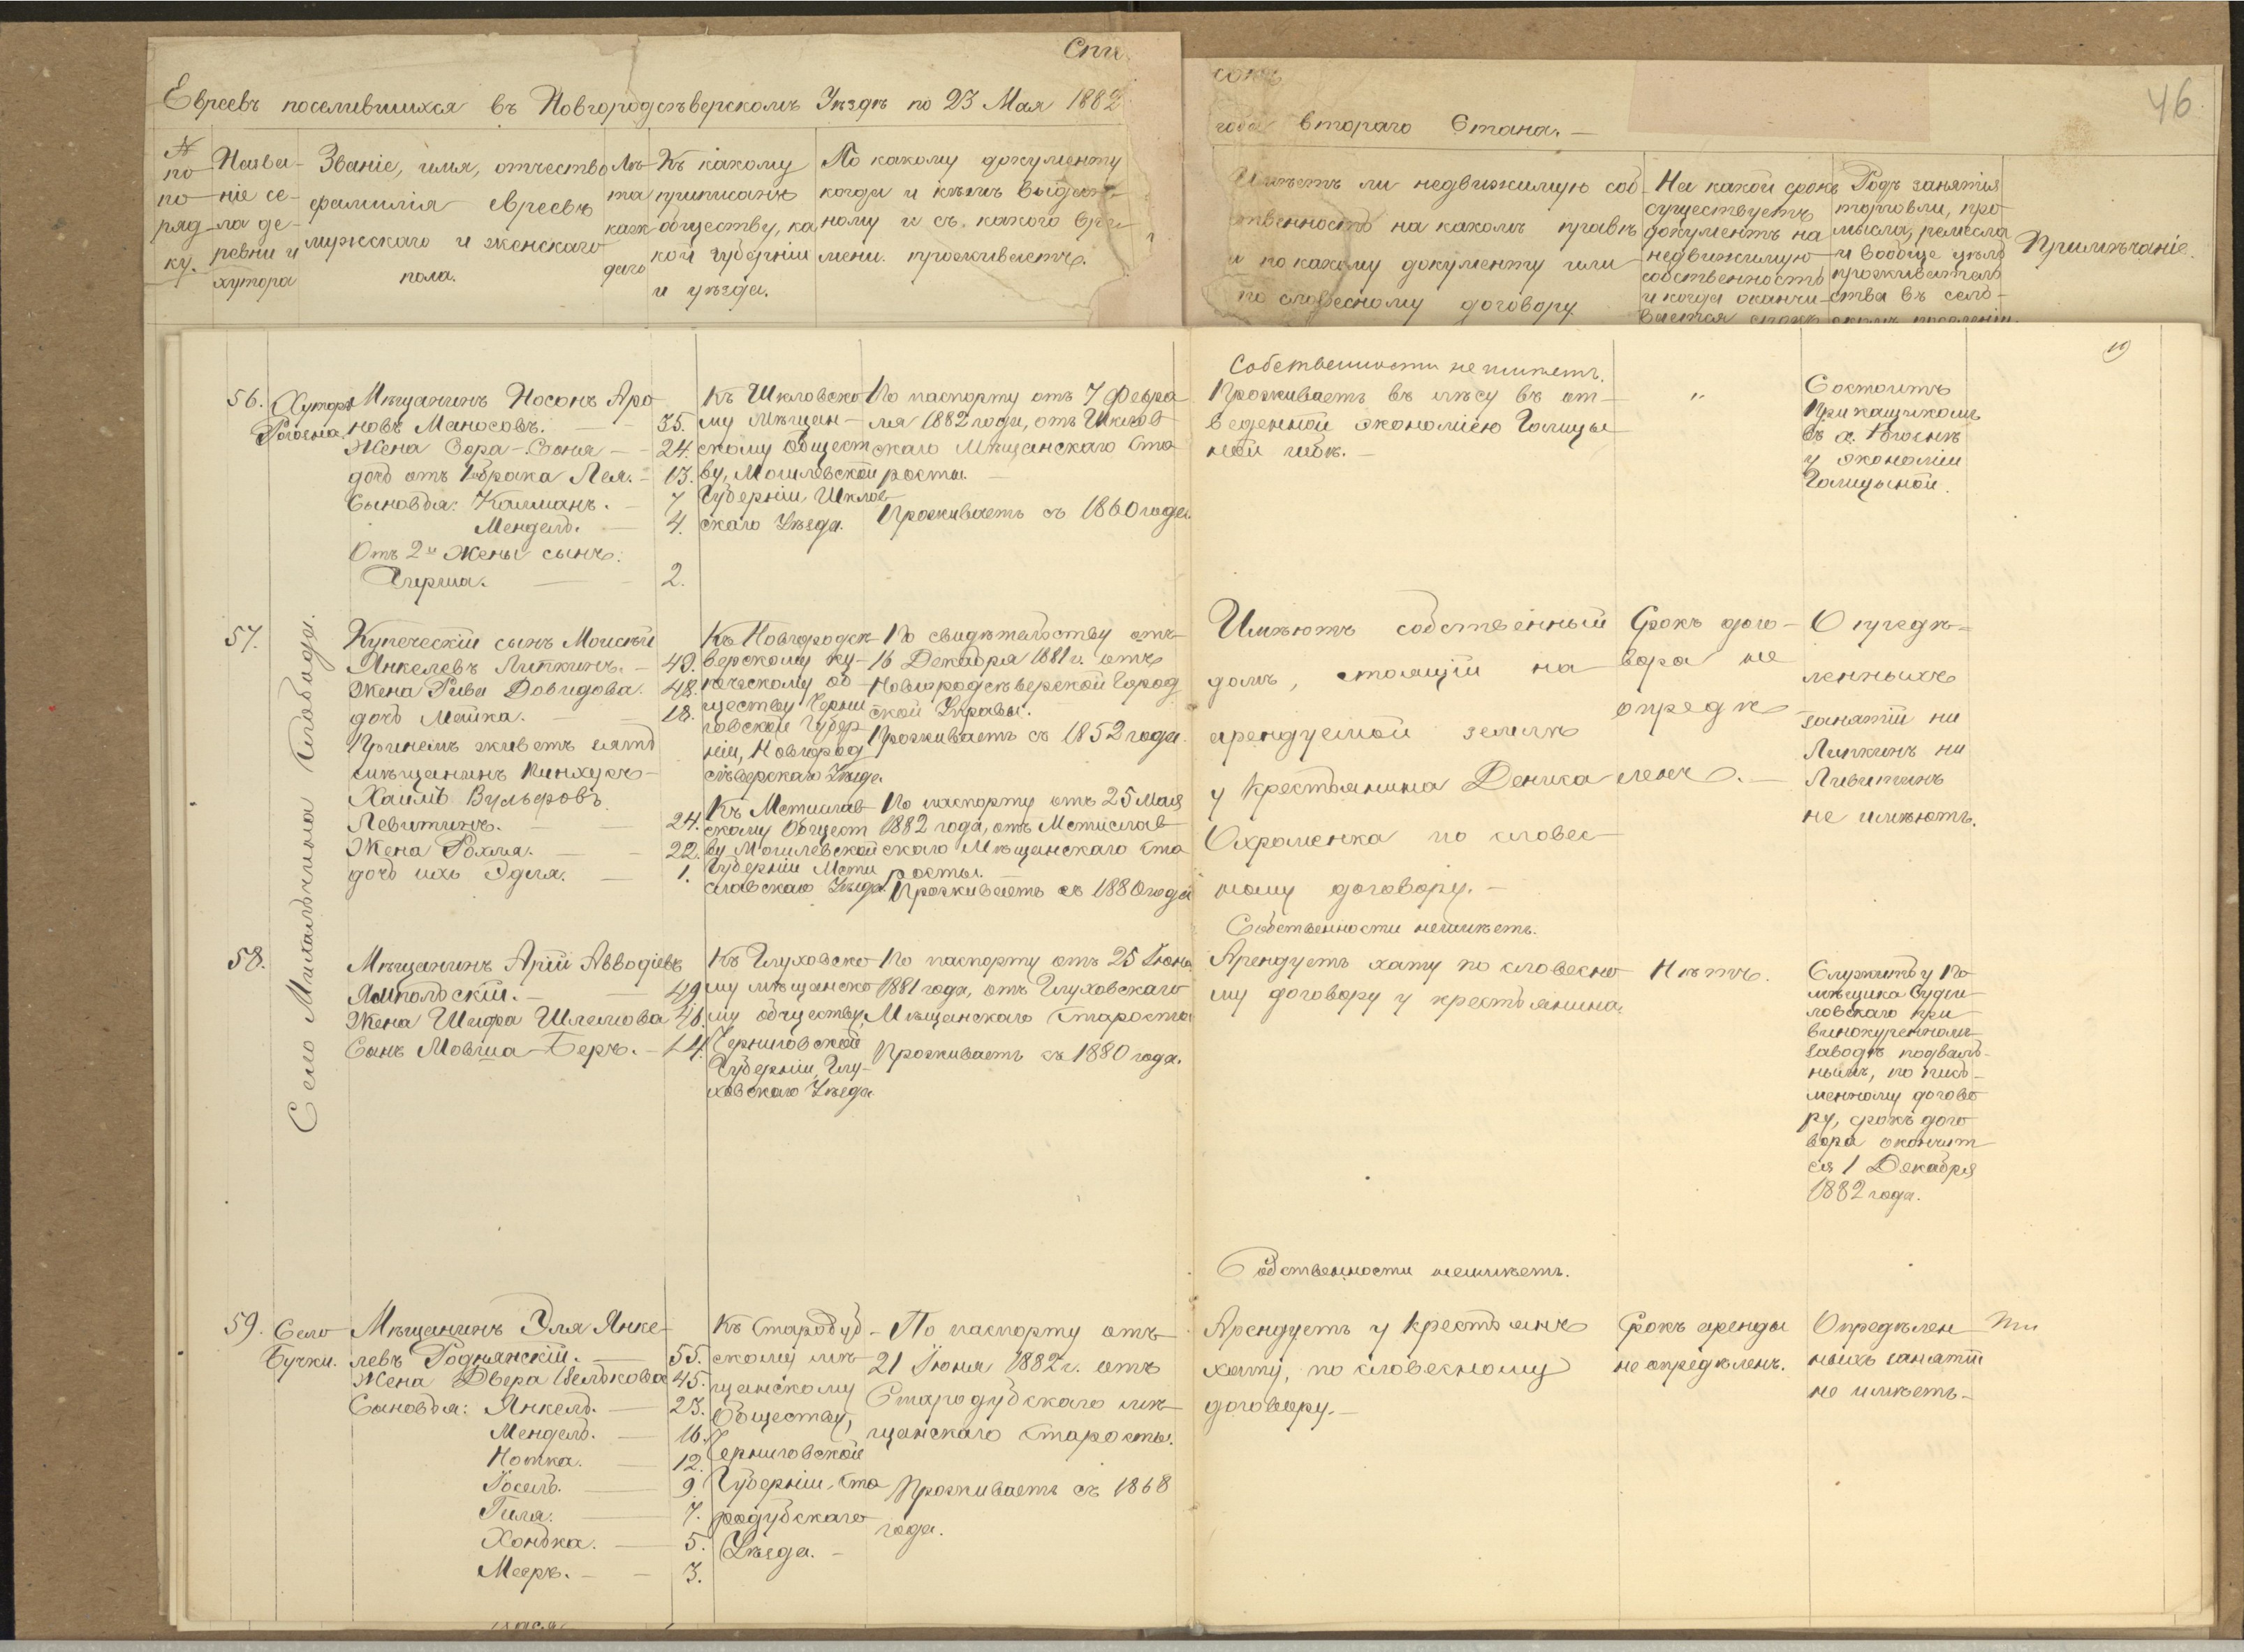 Спи
сокъ
46
Евреевъ поселившихся въ Новгородсѣверскомъ Уѣздѣ по 23 Мая 1882
года втораго Стана. —
№
по
по-
ряд-
ку.
Назва-
ніе се-
ла де-
ревни и
хутора
Званіе, имя, отчество
фамилія евреевъ
мужскаго и женскаго
пола.
Лѣ-
та
каж
даго
Къ какому
приписанъ
обществу, ка
кой губерніи
и уѣзда.
По какому документу
когда и кѣмъ выдан-
ному и съ какого вре-
мени проживаетъ.
Имѣетъ ли недвижимую соб-
ственность на какомъ правѣ
и по какому документу или
по словесному договору
На какой срокъ
существуетъ
документъ на
недвижимую
собственность
и когда оканчи-
вается срокъ
Родъ занятія
торговли, про
мысла, ремесла
и вообще цѣль
прожиратель
ства въ сель-
скомъ поселеніи.
Примѣчаніе.
56.
Хуторъ
Рогосна.
Мѣщанинъ Носонъ Аро
новъ Маносовъ. — 35.
Жена Сора-Соня — 24.
дочь отъ 1 брака Лея. — 13.
Сыновья: Калманъ. — 7
Мендель. — 4.
Отъ 2й жены сынъ:
Гирша. — 2.
Къ Шкловско
му Мѣщан-
скому Общест
ву, Могилевской
Губерніи Шклов
скаго Уѣзда.
По паспорту отъ 7 Февра
ля 1882 года, отъ Шклов
скаго Мѣщанскаго Ста
росты. —
Проживаетъ съ 1860 года.
Собственности не имѣетъ.
Проживаетъ въ лѣсу въ от-
веденной экономіею Голицы
ной избѣ. —
"
Состоитъ
Прикащикомъ
въ х. Рогоснѣ
у экономіи
Голицыной.
Село Михальчина Слобода.
57.
Купеческій сынъ Моисѣй
Янкелевъ Липкинъ. — 49.
Жена Рива Довидова. 48.
дочь Мейка. — 18.
При немъ живетъ зять
мѣщанинъ Пинхусъ-
Хаимъ Вульфовъ
Левитинъ. — 24.
Жена Рохля. — 22.
дочь ихъ Эдля. — 1.
Къ Новгородсѣ-
верскому ку-
печескому об-
ществу Черни
говской Губер
ніи, Новгород
сѣверскаго Уѣзда.
Къ Мстислав
скому Общест
ву Могилевской
Губерніи Мсти
славскаго Уѣзда.
По свидѣтельству отъ
16 Декабря 1881 г. отъ
Новгородсѣверской Город
ской Управы.
Проживаетъ съ 1852 года.
По паспорту отъ 25 Мая
1882 года, отъ Мстислав
скаго Мѣщанскаго Ста
росты. —
Проживаетъ съ 1880 года
Имѣютъ собственный
домъ, стоящій на
арендуемой землѣ
у Крестьянина Деника
Охраменка по словес-
ному договору. —
Срокъ дого-
вора не
опредѣ
ленъ. —
Опредѣ-
ленныхъ
занятій ни
Липкинъ ни
Ливитинъ
не имѣютъ.
58.
Мѣщанинъ Арій Авводіевъ
Ямпольскій. — 49
Жена Шифра Шлемова
Сынъ Мовша-Беръ. — 14.
Къ Глуховско
му мѣщанско
му обществу,
Черниговской
Губерніи, Глу-
ховскаго Уѣзда
По паспорту отъ 25 Іюня
1881 года, отъ Глуховскаго
Мѣщанскаго Старосты
Проживаетъ съ 1880 года.
Собственности неимѣетъ.
Арендуетъ хату по словесно
му договору у крестьянина.
Нѣтъ.
Служитъ у По
мѣщика Суди
ловскаго при
винокуренномъ
заводѣ подваль-
нымъ, по пись-
менному догово
ру, срокъ дого
вора окончит
ся 1 Декабря
1882 года.
59.
Село
Бучки.
Мѣщанинъ Эля Янке-
левъ Роднянскій. — 55.
Жена Двера Велькова 45.
Сыновья: Янкель. — 23.
Мендель. — 16.
Нотка. — 12.
Іосель. — 9.
Гиля. — 7.
Хонька. — 5.
Мееръ. — 3.
Къ Стародуб-
скому мѣ-
щанскому
Обществу,
Черниговской
Губерніи, Ста
родубскаго
Уѣзда. —
По паспорту отъ
21 Іюня 1882 г. отъ
Стародубскаго мѣ-
щанскаго Старосты.
Проживаетъ съ 1868
года.
Собственности неимѣетъ.
Арендуетъ у Крестьянъ
хату, по словесному
договору. —
Срокъ аренды
не опредѣленъ.
Опредѣлен
ныхъ занятій
не имѣетъ.